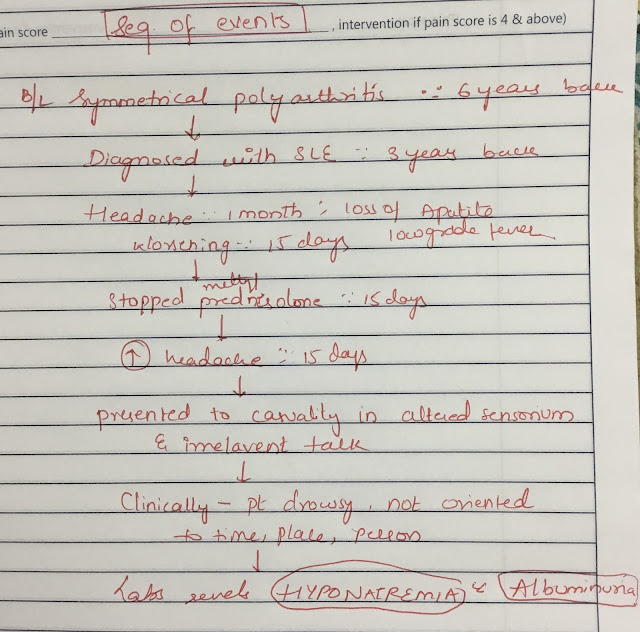 ain score Seq. of events , intervention if pain score is 4 & above)
B/L Symmetrical polyarthritis ∵ 6 years back
↓
Diagnosed with SLE ∵ 3 year back
↓
Headache ∵ 1 month ∵ loss of Apatite
Worsening ∵ 15 days low grade fever
↓
methyl
Stopped prednisolone ∵ 15 days
↓
↑ headache ∵ 15 days
↓
presented to casuality in altered sensorium
& irrelavent talk
↓
Clinically - pt drowsy, not oriented
to time, place, person
↓
Labs revels HYPONATREMIA & Albuminuria